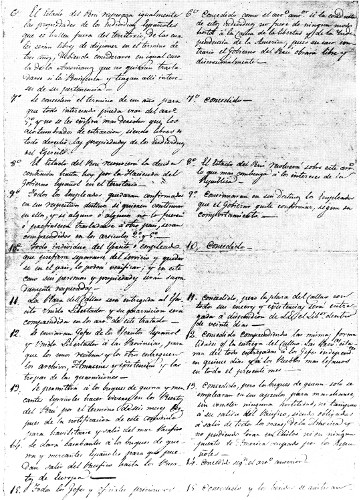 6º El estado del Perú respetará igualmente
las propiedades de los individuos españoles
que se hallen fuera del territorio, de las cua
les serán libres de disponer en el término de
tres años, debiendo considerarse en igual caso
las de los americanos que no quieran trasla
darse a la Península y tengan allí intere
ses de su pertenencia.
7º Se concederá el término de un año para
que todo interesado pueda usar del artº
5º, y no se le exigirá mas derechos que los
acostumbrados de extraccion, siendo libres de
todo derecho las propiedades de los individuos
del Ejército.
8º El estado del Perú reconocerá la deuda
contraida hasta hoy por la Hacienda del
Gobierno español en el territorio.
9º Todos los empleados quedarán confirmados
en sus respectivos destinos si quieren continuar
en ellos, y si alguno o algunos no lo fuesen
o prefiriesen trasladarse a otro pais, serán
comprendidos en los articulos 2º y 5º
10. Todo individuo del Ejército o empleado
que prefiera separarse del servicio y quedar
se en el pais, lo podrá verificar, y en este
caso sus personas y propiedades serán sagra
damente respetadas.
11. La Plaza del Callao será entregada al Ejér
cito Unido Libertador y su guarnicion será
comprendida en los artos de este tratado.
12. Se enviarán Gefes de los Ejércitos Español
y Unido Libertador a las Provincias, para
que los unos reciban y los otros entreguen
los archivos, almacenes, existencias y las
tropas de las guarniciones.
13. Se permitirá a los buques de guerra y mer
cantes españoles hacer víveres en los Puertos
del Perú por el término de seis meses, des
pues de la notificacion de este convenio
para habilitarse y salir del mar Pacífico
14. Se darán pasaportes a los buques de guer
ra y mercantes Españoles para que pue
dan salir del Pacífico hasta los Puer
tos de Europa.
15. Todos los Gefes y oficiales prisioneros
6º Concedido como el artº anterior si la conducta
de estos individuos no fuese de ningun modo
hostil a la causa de la libertad y de la inde
pendencia de la America, pues en caso con
trario el Gobierno del Perú obrará libre y
discrecionalmente.
7º Concedido.
8º El estado del Perú resolverá sobre este artº
lo que mas convenga a los intereses de la
República.
9º Continuarán en sus destinos los empleados
que el Gobierno guste confirmar, segun su
comportamiento.
10. Concedido.
11. Concedido, pero la plaza del Callao con
todos sus enseres y existencias, será entre
gada a disposicion de S.E. el Libr dentro
de veinte dias.
13. Concedido, pero los buques de guerra solo se
emplearán en sus aprestos para marcharse,
sin cometer ninguna hostilidad, ni tampoco
a su salida del Pacífico, siendo obligados
a salir de todos los mares de la America, no
pudiendo tocar en Chiloé, ni en ningun
puerto de America ocupado por los
Españoles.
14. Concedido segn el artº anterior